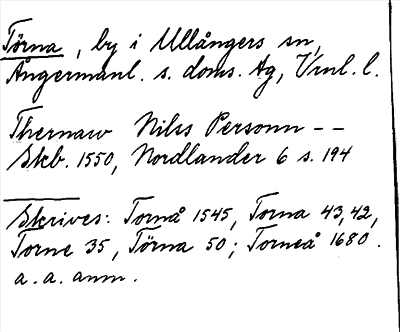 Törna, by i Ullångers sn,
Ångermanl. s. doms. Ag, Vrnl. l.
Thernaw Nilss Personn - -
Skb. 1550, Nordlander 6 s. 194
Skrives: Tornå 1545, Torna 43, 42,
Torne 35, Törna 50; Torneå 1680.
a. a. anm.